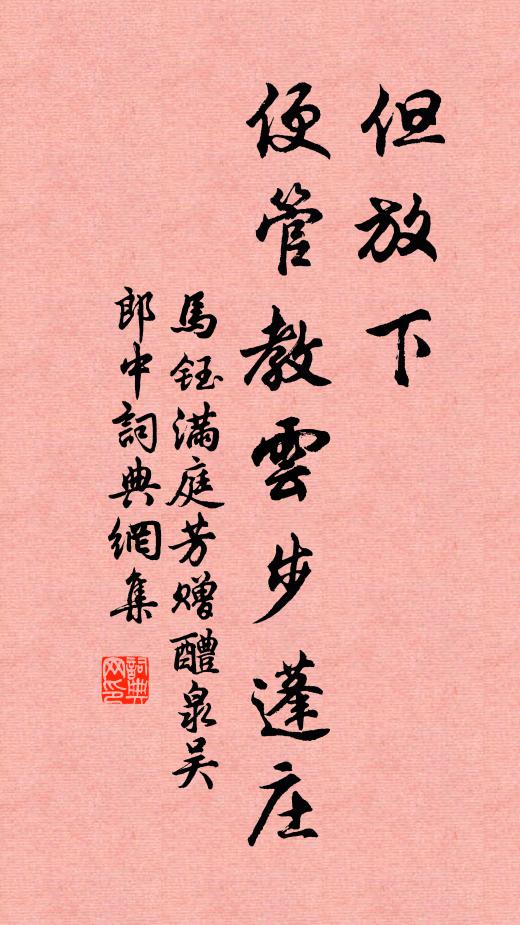 但放下
便管教雲步蓬庄
馬鈺满庭芳赠醴泉吴
郎中詞典網集
詞典
网印